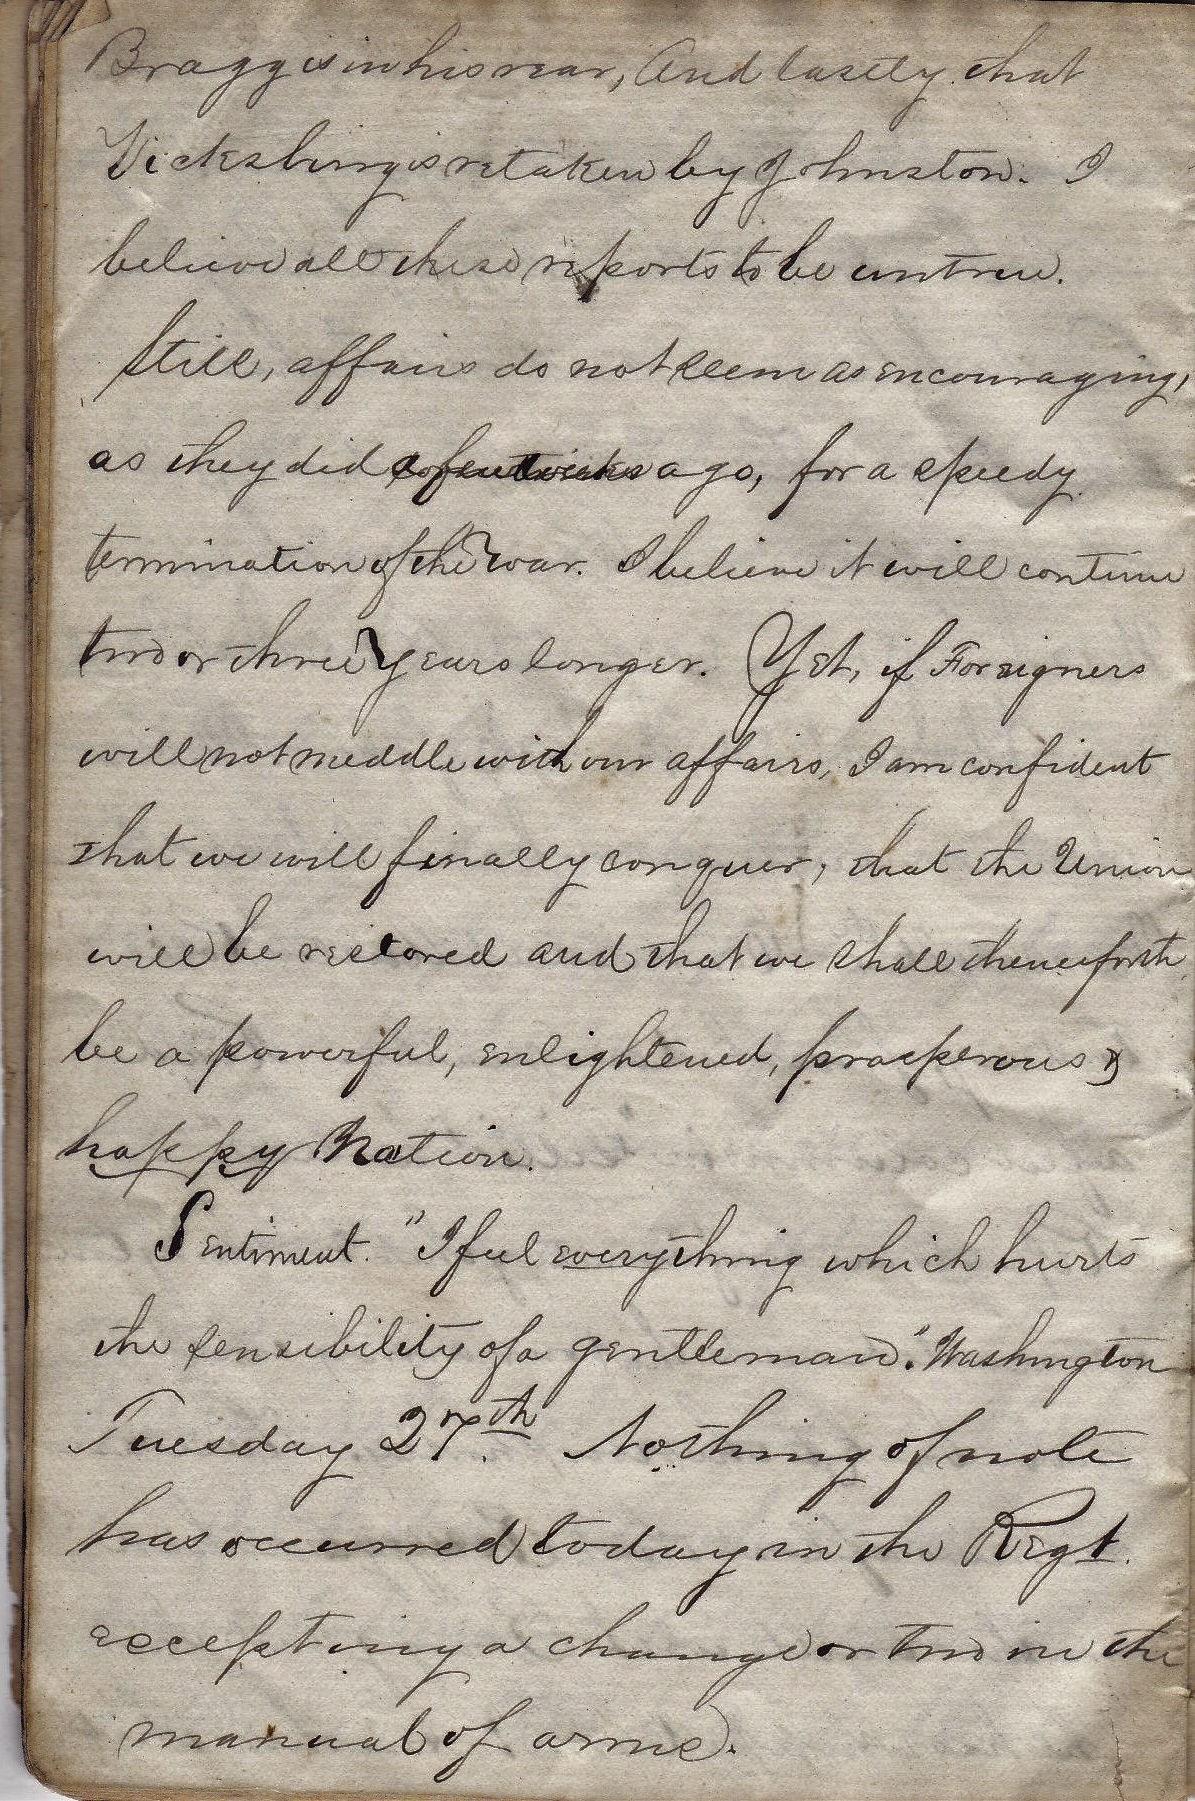 Bragg is in his rear, And lastly that
Vicksburg is retaken by Johnston. I
believe all these reports to be untrue.
Still, affairs do not seem as encouraging,
as they did a few weeks ago, for a speedy
termination of the war. I believe it will continue
two or three years longer. Yet, if Foreigners
will not meddle with our affairs, I am confident
that we will finally conquer, that the Union
will be restored and that we shall thenceforth
be a powerful, enlightened, prosperous &
happy Nation.
Sentiment. "I feel everything which hurts
the sensibility of a gentleman". Washington
Tuesday 27th. Nothing of note
has occurred today in the Regt.
excepting a change or two in the
manual of arms.